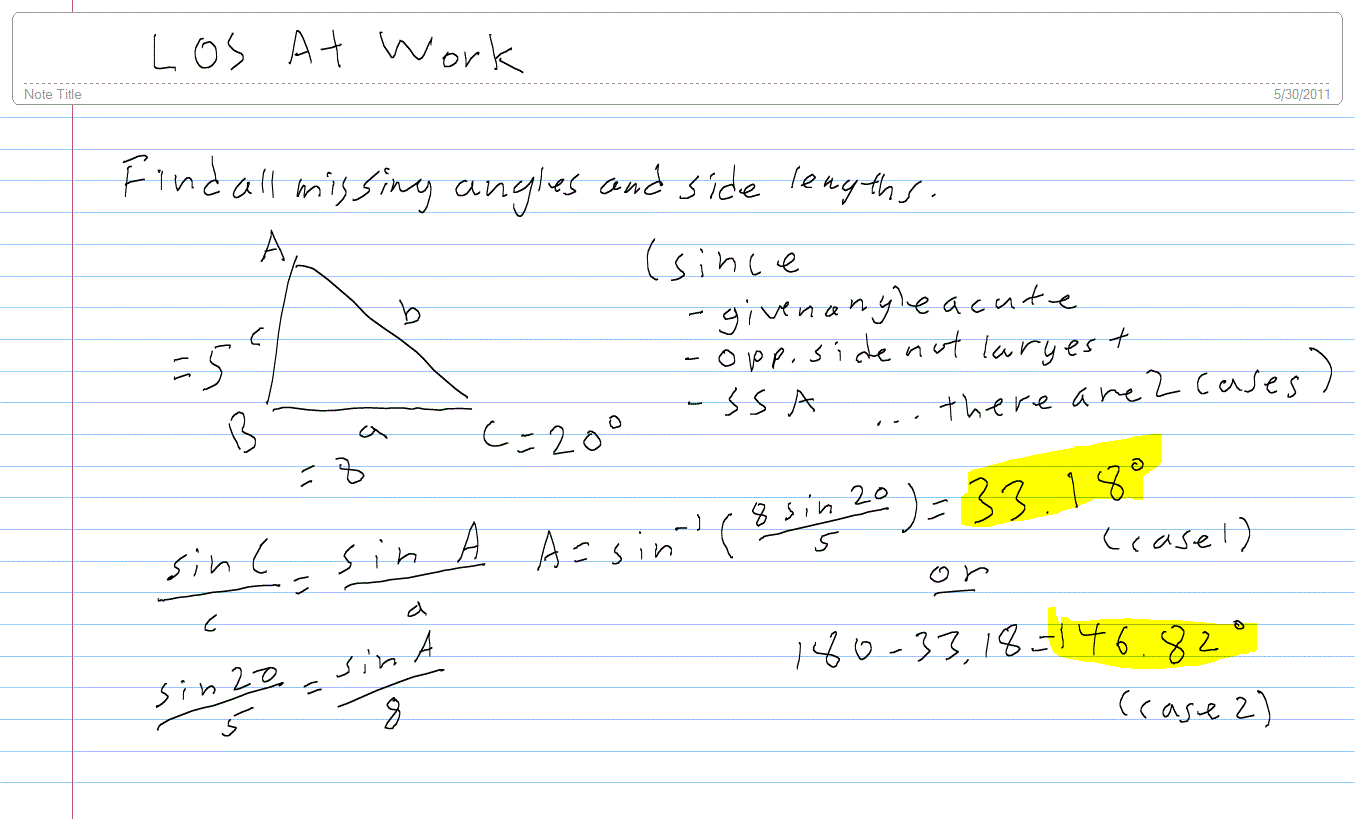 LOS At Work
Note Title
5/30/2011
Find all missing angles and side lengths.
A
(since
- given angle acute
b
c
= 5
- opp. side not largest
- SSA ... there are 2 cases)
B
a
C = 20°
= 8
sin C / c = sin A / a
A = sin⁻¹ (8 sin 20 / 5) = 33.18°
(case 1)
or
180 - 33.18 = 146.82°
sin 20 / 5 = sin A / 8
(case 2)